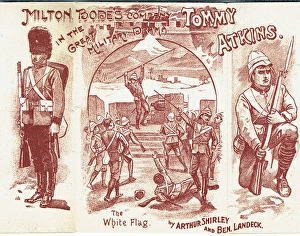 MILTON BODE'S COMPANY
IN THE
GREAT
MILITARY DRAMA
TOMMY
ATKINS.
The
White Flag.
by ARTHUR SHIRLEY
AND BEN. LANDECK.